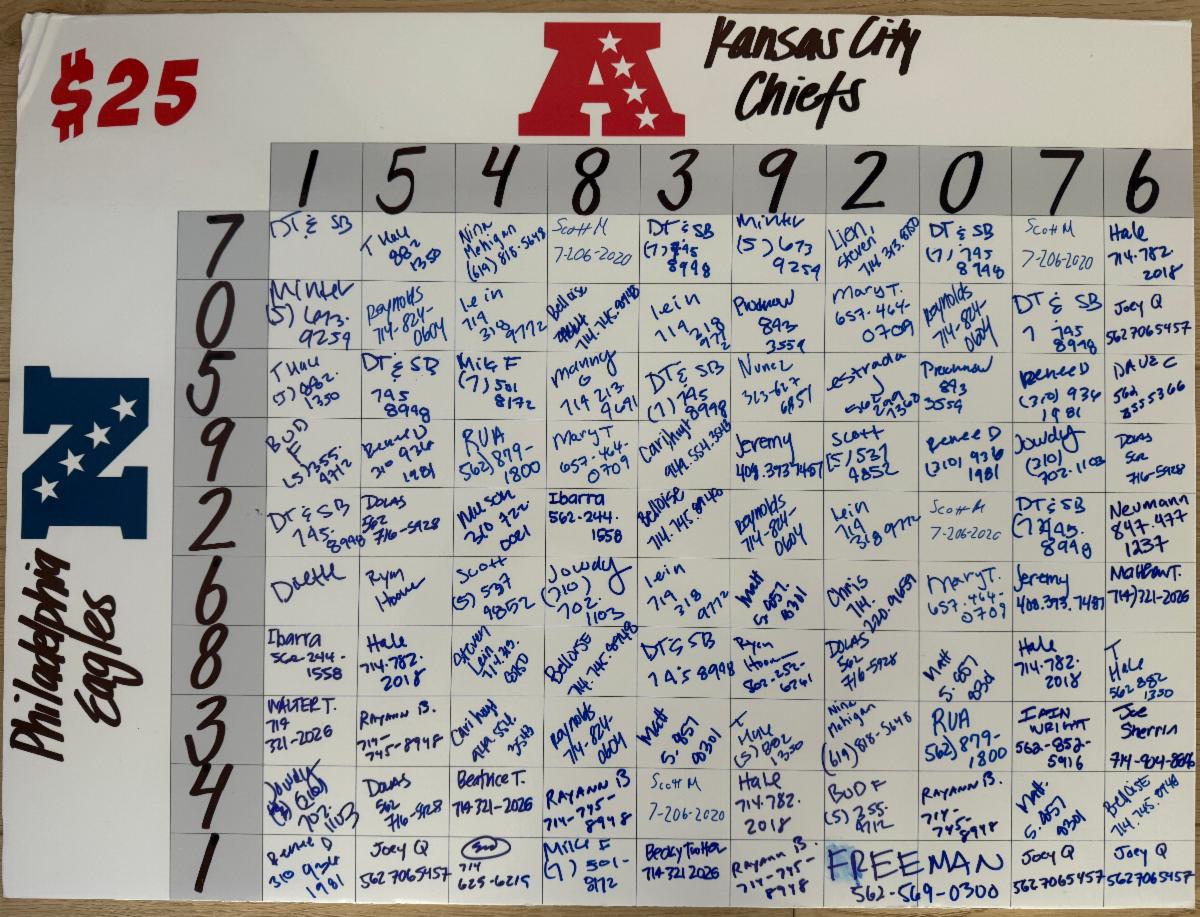 $25
A
Kansas City
Chiefs
N
Philadelphia
Eagles
1 5 4 8 3 9 2 0 7 6
7
DT & SB
T Hall
882
1350
Nina
Mohigan
(619) 818-5648
Scott M
7-206-2020
DT & SB
(7) 745
8948
Minter
(5) 673
9259
Lien,
Steven
714.313.8350
DT & SB
(7) 745
8948
Scott M
7-206-2020
Hale
714.782.
2018
0
Minter
(5) 673.
9259
Reynolds
714-824-
0604
Lein
714
318 9772
Belloise
714.745.8948
Lein
714 318
9772
Prochnow
893
3559
Mary T.
657-464-
0709
Reynolds
714-824-
0604
DT & SB
7 745
8948
Joey Q
5627065457
5
T Hall
(5) 882.
1350
DT & SB
745
8948
Mike F
(7) 501
8172
Manny
G
714 213.
9691
DT & SB
(7) 745
8948
Nunez
323-627
6851
estrada
J
Prochnow
893
3559
Renee D
(310) 936
1981
DAVE C
562
8555366
9
BUD
F
(5) 355.
9712
Renee D
310 936
1981
RUA
562) 879-
1800
Mary T
657-464-
0709
Cari Hoyt
949.554.3543
Jeremy
408.393.7487
Scott
(5) 537
4852
Renee D
(310) 936
1981
Jowdy
(310)
702.1103
Dolas
562
716-5928
2
DT & SB
745.
8948
DOLAS
562
716-5928
Nelson
310 722
0021
Ibarra
562-244.
1558
Belloise
714.745.8948
Reynolds
714-824-
0604
Lein
714
318 9772
Scott M
7-206-2020
DT & SB
(7) 745.
8948
Neumann
847-477
1237
6
Ryan
Scott
(5) 537
4852
Jowdy
(310)
702.
1103
Lein
714
318
9772
Matt
5.857.
0301
Chris
714.
220.9659
Mary T.
657-464-
0709
Jeremy
408.393.7487
Mathew T.
714) 321-2026
8
Ibarra
562-244-
1558
Hale
714.782.
2018
Steven
Lein
714.313.
8350
Belloise
714.745.8948
DT & SB
745 8948
Ryan
562-252-
6241
DOLAS
562
716-5928
Matt
5.857
0301
Hale
714.782.
2018
T
Hale
562 882
1350
3
WALTER T.
714
321-2026
RAYANN B.
714-
745-8948
Cari Hoyt
949.554.
3543
Reynolds
714-824-
0604
Matt
5.857
0301
T
Hall
(5) 882
1350
Nina
Mohigan
(619) 818-5648
RUA
562) 879-
1800
IAIN
WRIGHT
562-852-
5916
Joe
Sherrin
714-904-8696
4
Jowdy
(310)
702.
1103
DOLAS
562
716-5928
Beatrice T.
714 321-2026
RAYANN B
714-745-
8948
Scott M
7-206-2020
Hale
714.782.
2018
BUD F
(5) 355.
9712
RAYANN B.
714-
745-8948
Matt.
5.857
0301
Belloise
714.745.8948
1
Renee D
310 936
1981
Joey Q
5627065457
714
625-6215
Mike F
(7) 501-
8172
Becky Trotter
714 321 2026
RAYANN B.
714-745-
8948
FREEMAN
562-569-0300
Joey Q
5627065457
Joey Q
5627065457